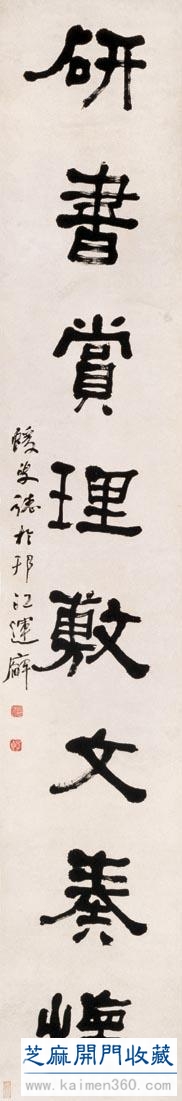 研書賞理敷文奏懷
蝯叟誌於邗江運廨
芝麻開門收藏
www.kaimen360.com